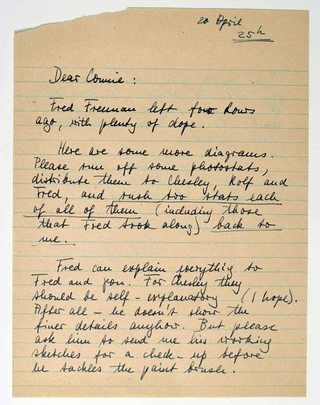 20 April
25h
Dear Connie:
Fred Freeman left four hours
ago, with plenty of dope.
Here are some more diagrams.
Please run off some photostats,
distribute them to Chesley, Rolf and
Fred, and rush two stats each
of all of them (including those
that Fred took along) back to
me.
Fred can explain everything to
Fred and you. For Chesley they
should be self-explanatory (I hope).
After all – he doesn't show the
finer details anyhow. But please
ask him to send me his working
sketches for a check-up before
he tackles the paint brush.